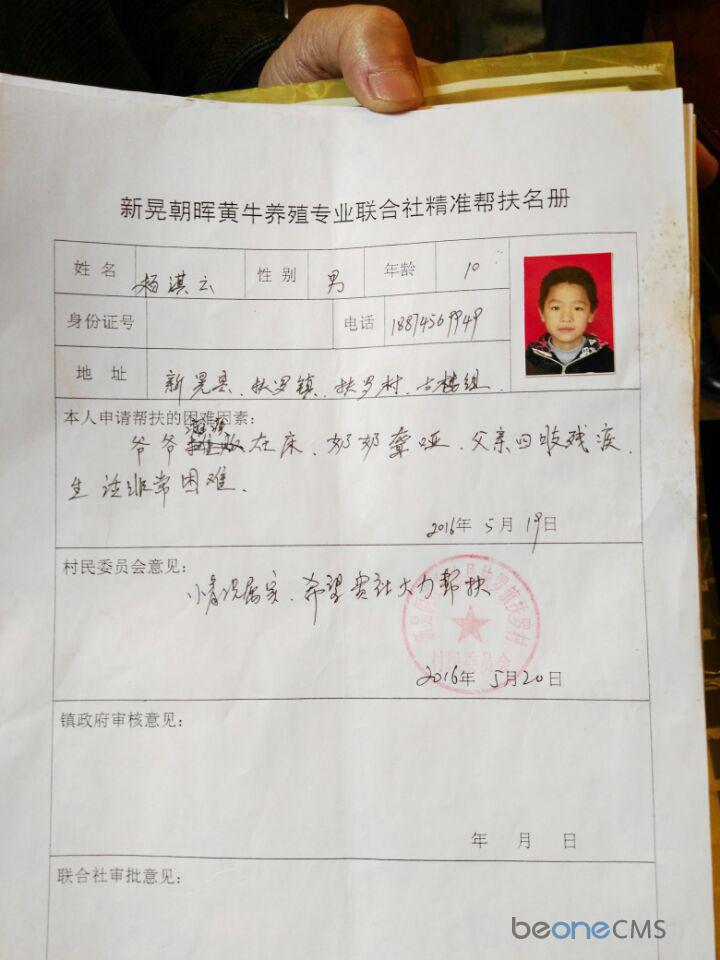 新晃朝晖黄牛养殖专业联合社精准帮扶名册
姓名 杨淇云 性别 男 年龄 10
身份证号 电话 18874569949
地址 新晃县、扶罗镇、扶罗村、古楼组
本人申请帮扶的困难因素:
爷爷 在床、奶奶聋哑、父亲四肢残疾、
生活非常困难、
2016年 5月 19日
村民委员会意见:
情况属实、希望贵社大力帮扶
扶罗镇扶罗村
村民委员会
2016年 5月20日
镇政府审核意见:
年 月 日
联合社审批意见:
beoneCMS